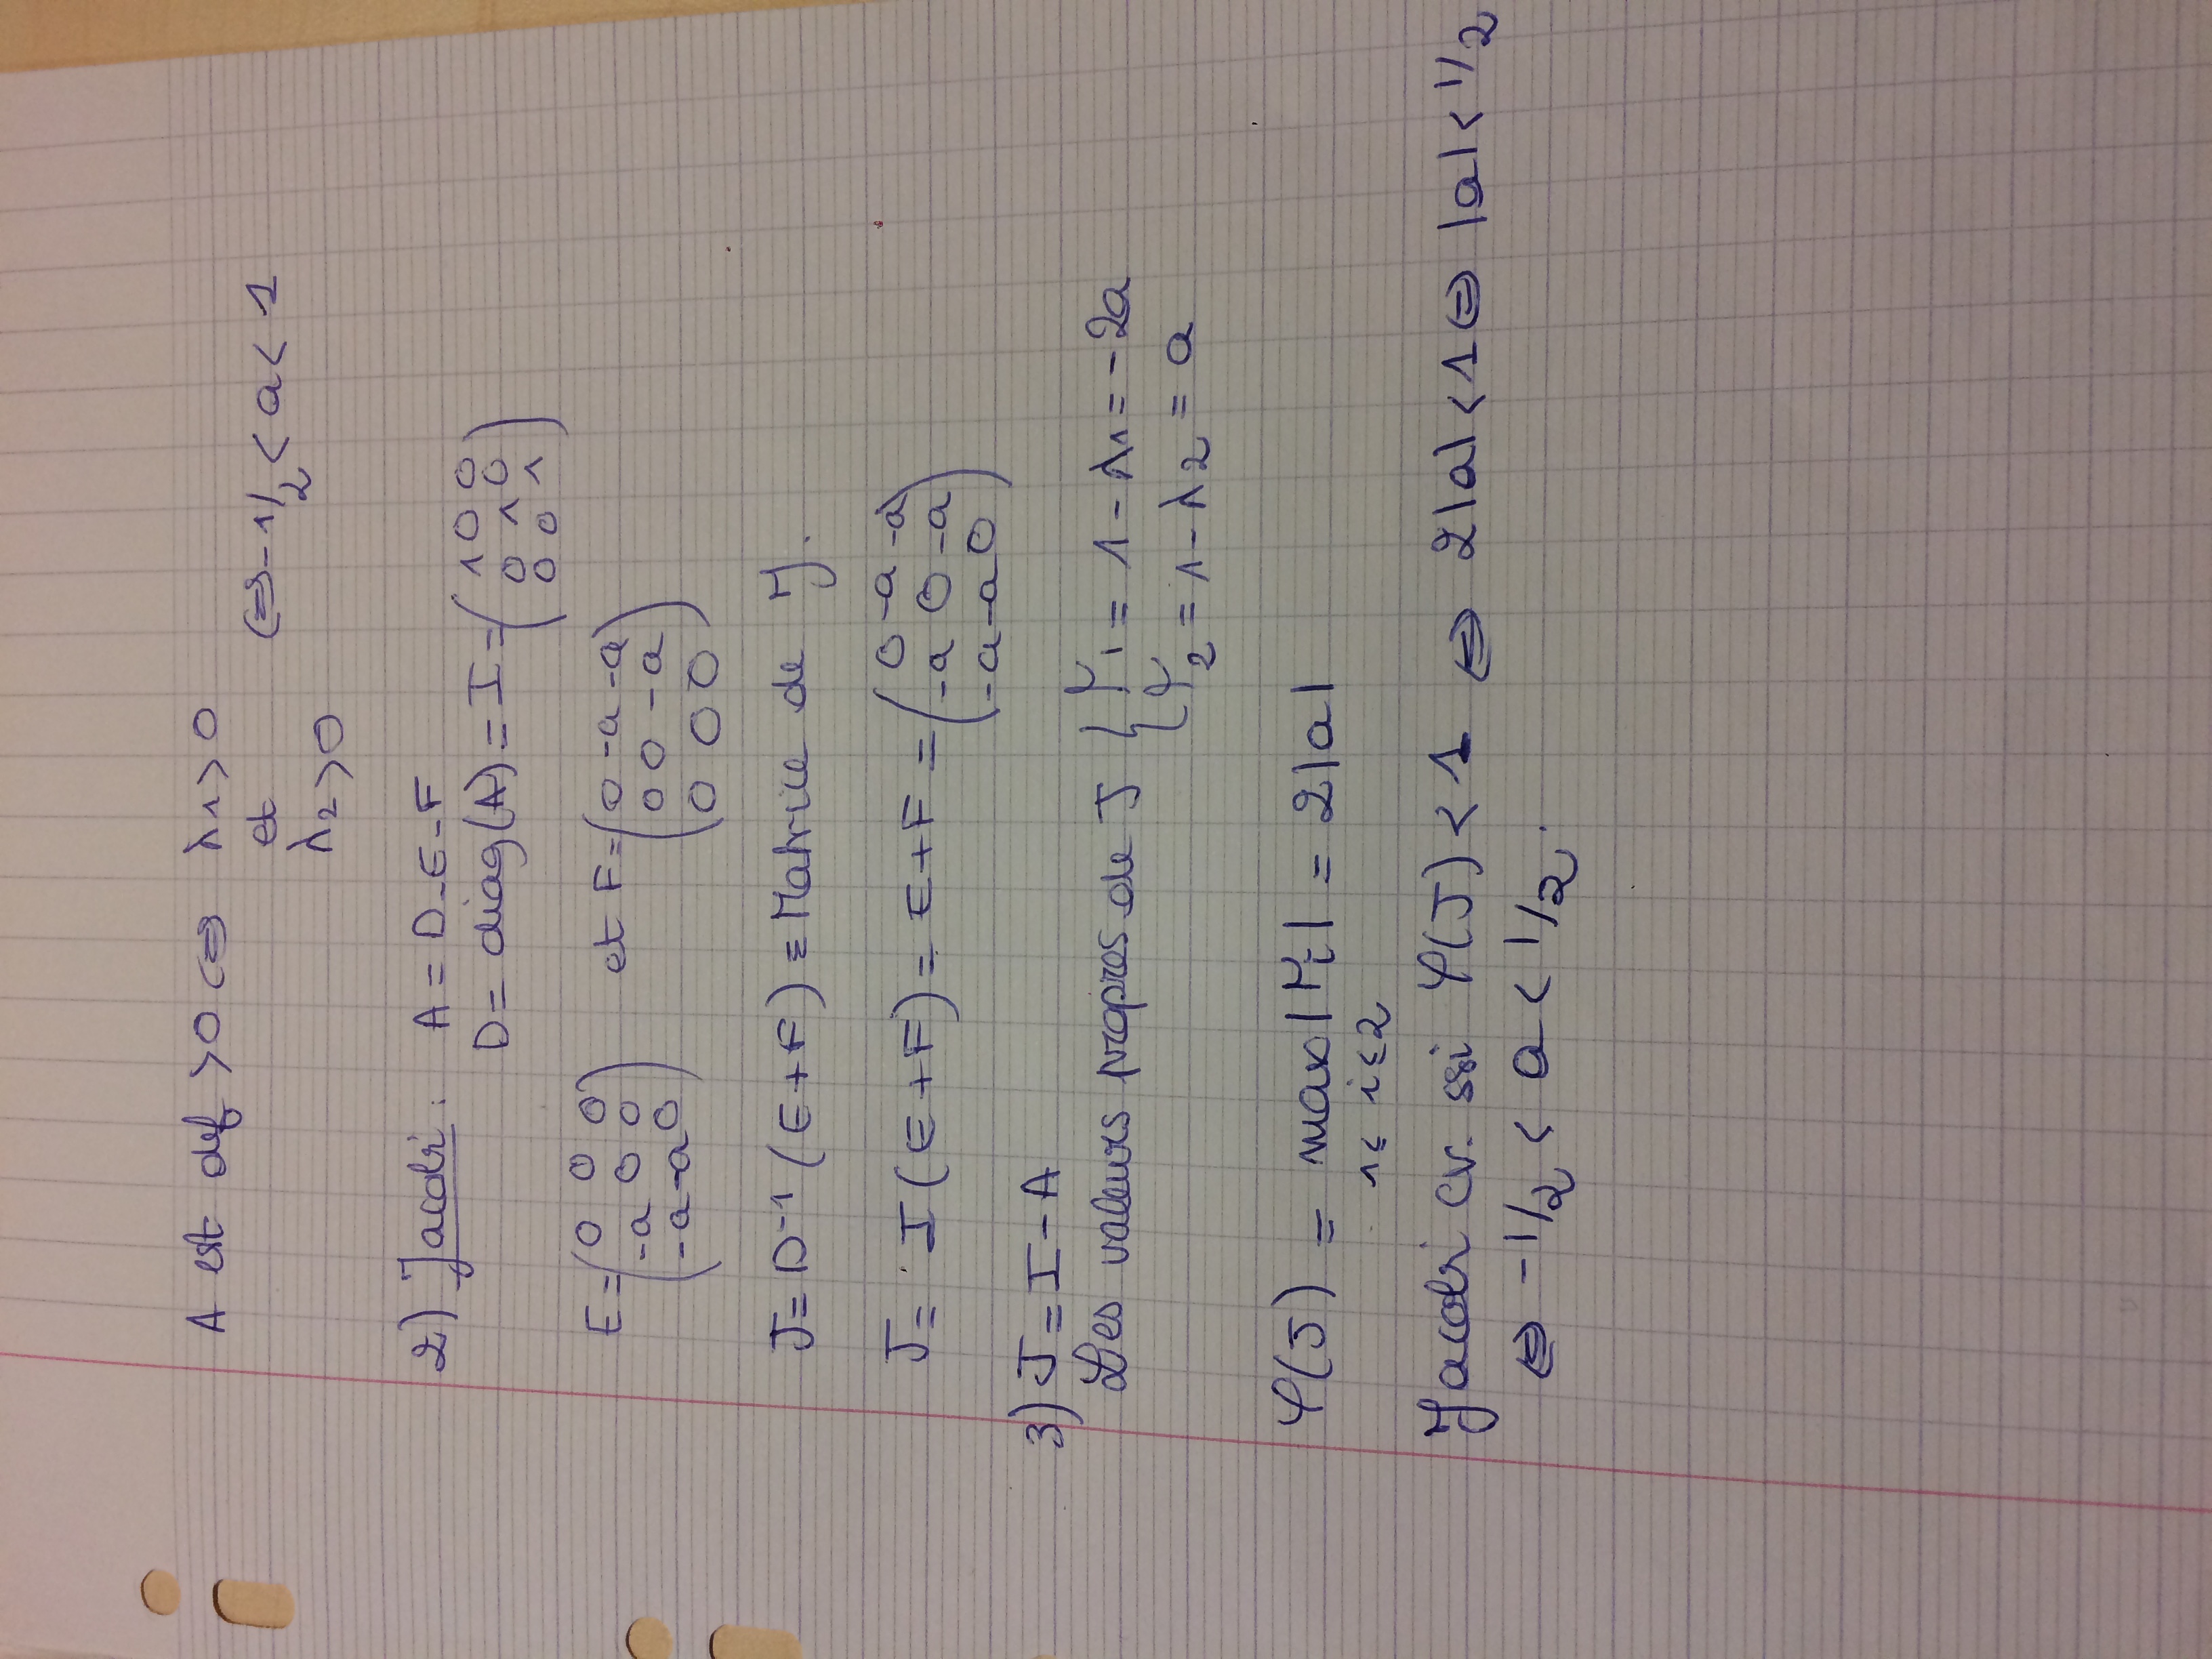 A est def >0 ⇔ λ1 > 0
et ⇔ -1/2 < a < 1
λ2 > 0
2) Jacobi : A = D-E-F
D = diag(A) = I = (1 0 0
0 1 0
0 0 1)
E = (0 0 0
-a 0 0
-a -a 0) et F = (0 -a -a
0 0 -a
0 0 0)
J = D⁻¹ (E+F) = Matrice de J.
J = I(E+F) = E+F = (0 -a -a
-a 0 -a
-a -a 0)
3) J = I - A
Les valeurs propres de J { μ1 = 1 - λ1 = -2a
μ2 = 1 - λ2 = a
φ(J) = max |μi| = 2|a|
1≤ i ≤2
Jacobi cv. ssi φ(J) < 1 ⇔ 2|a| < 1 ⇔ |a| < 1/2
⇔ -1/2 < a < 1/2.